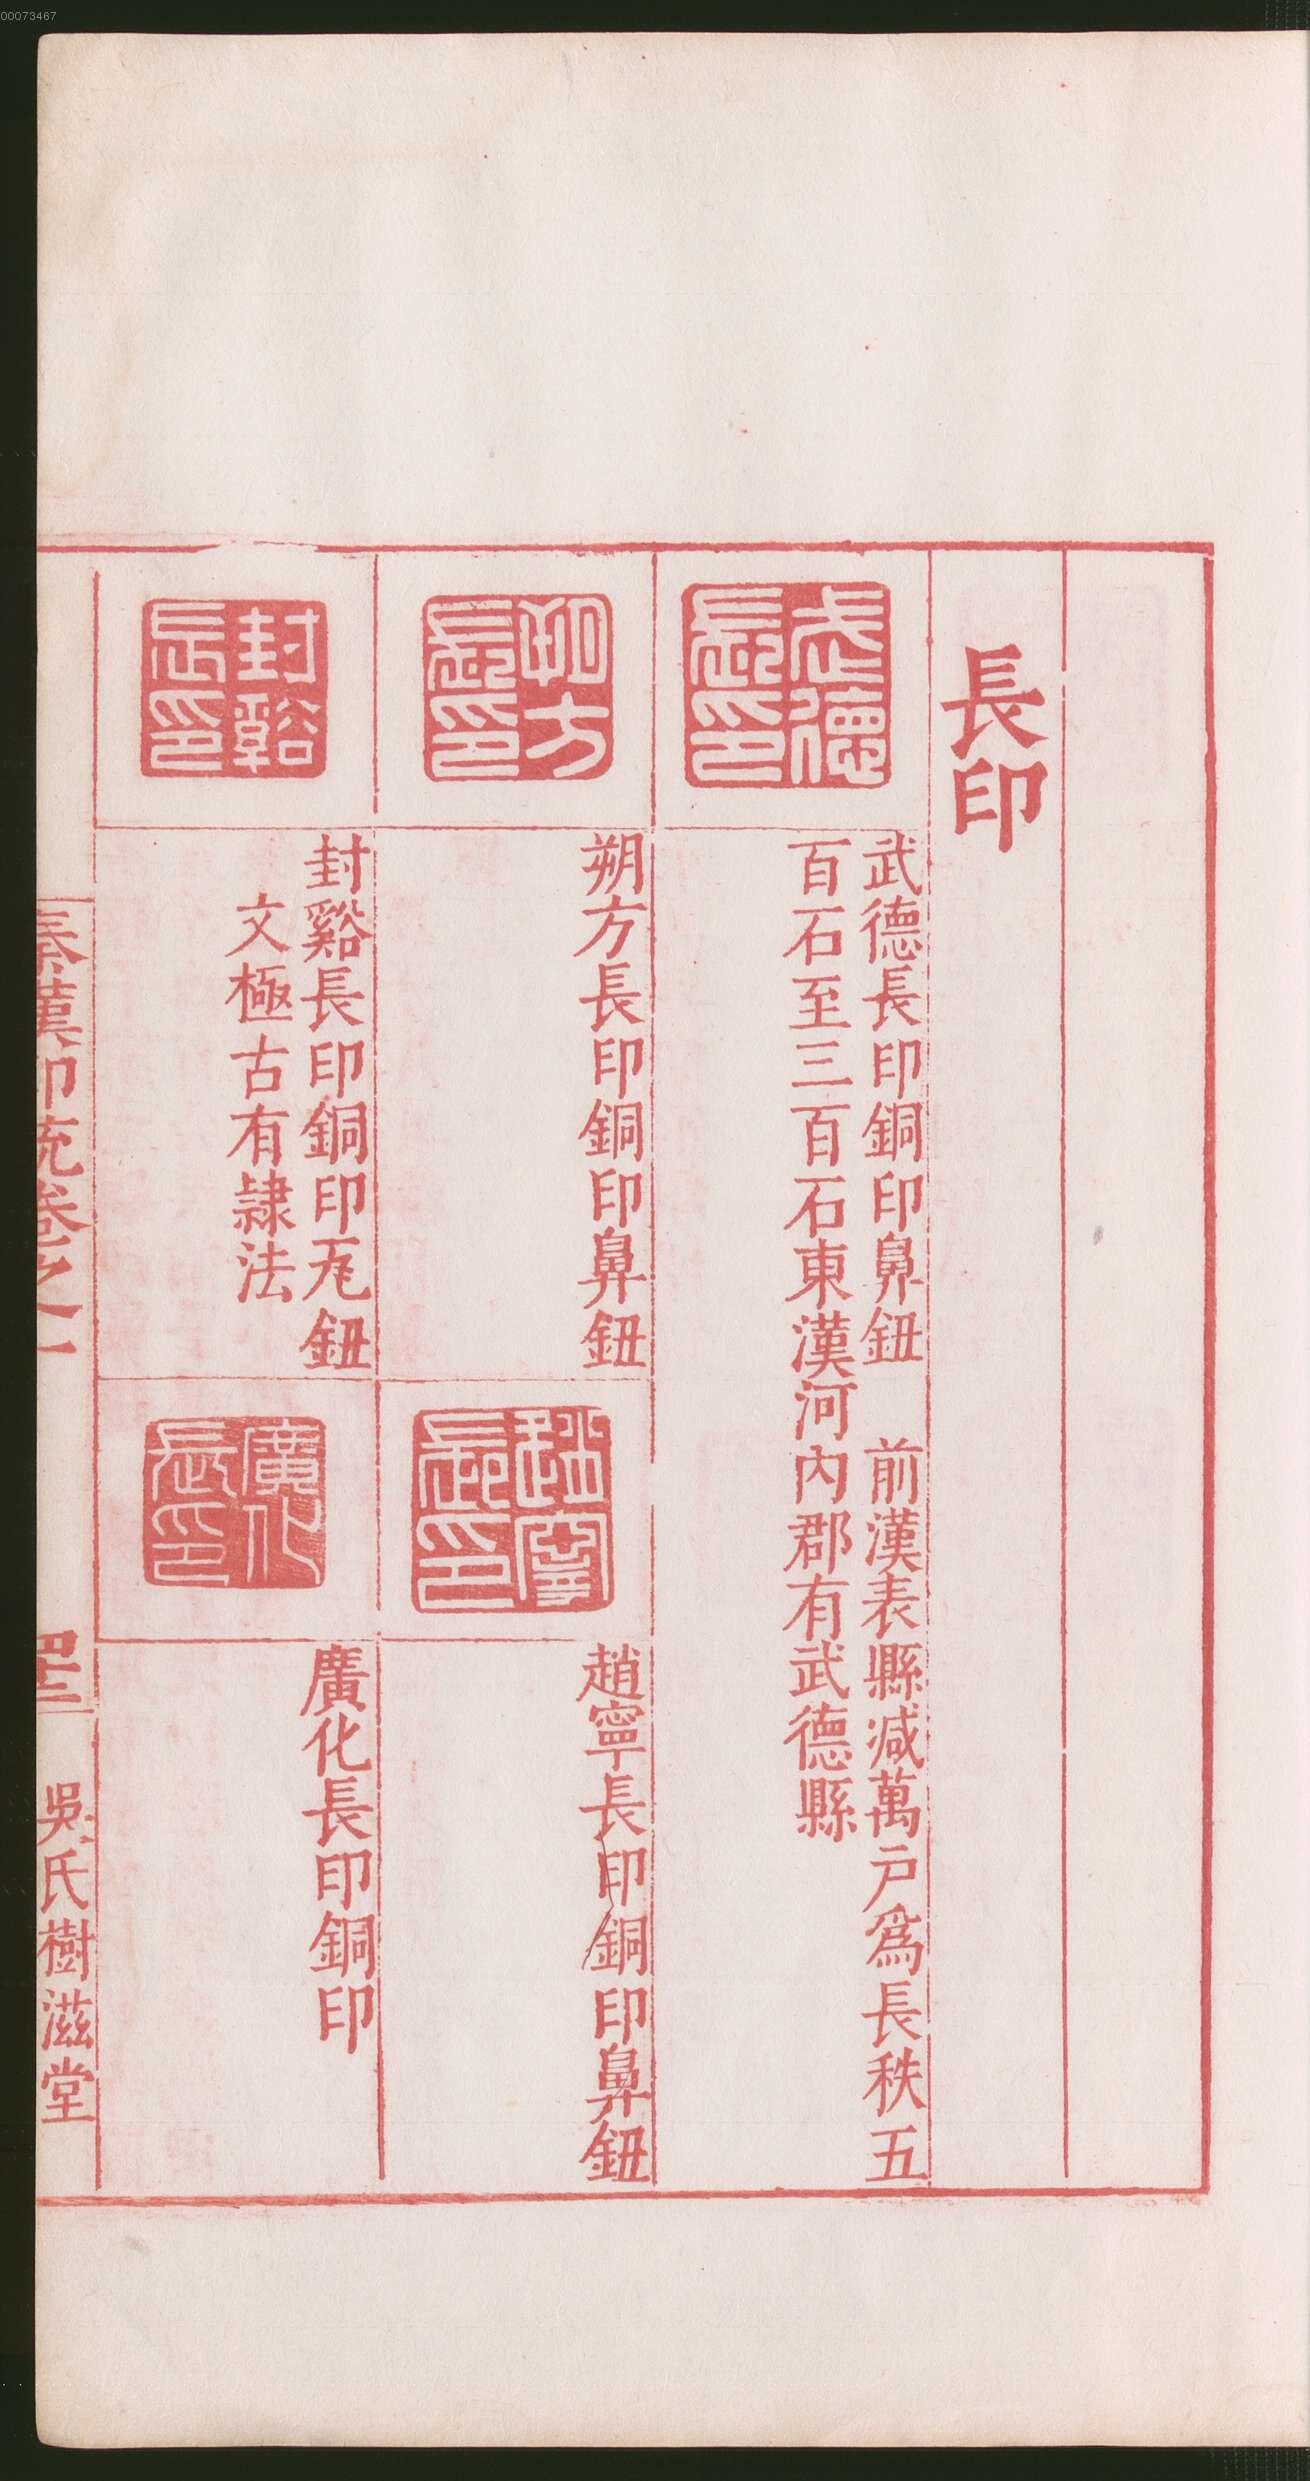 00073467
長印
武德長印
武德長印銅印鼻鈕　前漢表縣減萬戶爲長秩五
百石至三百石東漢河內郡有武德縣
朔方長印
朔方長印銅印鼻鈕
趙寧長印
趙寧長印銅印鼻鈕
封谿長印
封谿長印銅印瓦鈕
文極古有隸法
廣化長印
廣化長印銅印
秦漢印統卷之一
四十二
吳氏樹滋堂